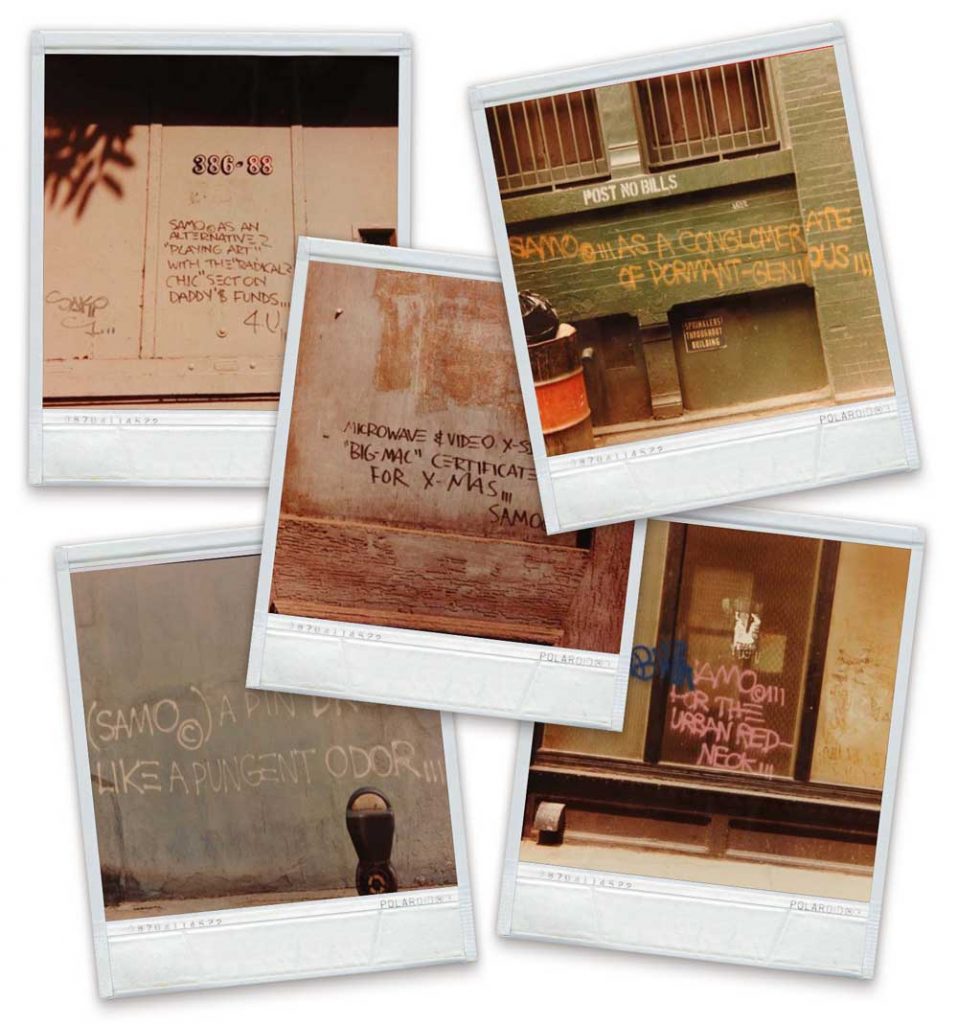 386-88
SAMO© AS AN
ALTERNATIVE 2
"PLAYING ART"
WITH THE "RADICAL?
CHIC" SECT ON
DADDY'$ FUNDS,,,
4 U,
98704114522
POST NO BILLS
SAMO©!!! AS A CONGLOMERATE
OF DORMANT-GENIOUS,,,
SPRINKLERS
THROUGHOUT
BUILDING
98704114522
POLAROID®
MICROWAVE & VIDEO X-S
"BIG-MAC" CERTIFICATE
FOR X-MAS,,,
SAMO
98704114522
POLAROID®
(SAMO©) A PIN
LIKE A PUNGENT ODOR,,,
98704114522
POLAROID®
AMO©!!!
FOR THE
URBAN RED-
NECK,,,
98704114522
POLAROID®